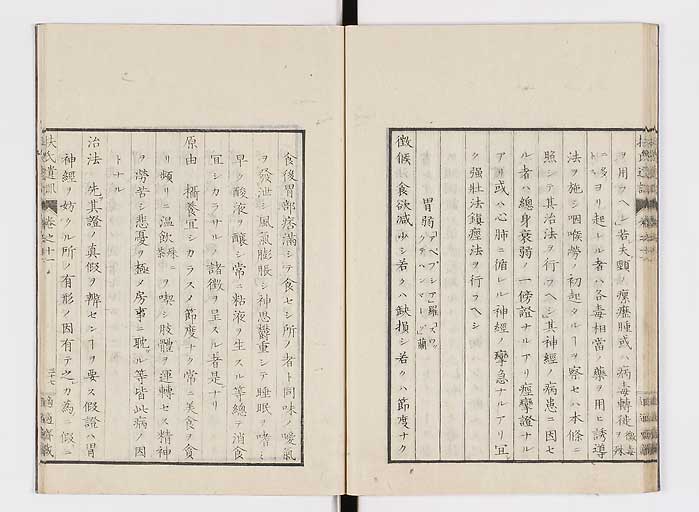 ヲ用ウヘシ若夫頸ノ瘰癧腫或ハ病毒轉徙
ニヨリ起レル者ハ各毒相當ノ藥ヲ用ヒ誘導
法ヲ施シ咽喉勞ノ初起タルヿヲ察セハ本條ニ
照シテ其治法ヲ行フヘシ其神經ノ病患ニ因セ
ル者ハ總身衰弱ノ一傍證ナルアリ痙攣證ナル
アリ或ハ心肺ニ循レル神經ノ攣急ナルアリ宜
ク強壯法鎮痙法ヲ行フヘシ
胃弱
徴候 食欲減少シ若クハ缺損シ若クハ節度ナク
食後胃部痞滿シテ食セシ所ノ者ト同味ノ噯氣
ヲ發泄シ風氣膨脹シ神思鬱重シテ睡眠ヲ嗜ミ
早ク酸液ヲ釀シ常ニ粘液ヲ生スル等總テ消食
宜シカラサルノ諸徴ヲ呈スル者是ナリ
原由 攝養宜シカラス節度ナク常ニ美食ヲ食
リ頻リニ温飲ヲ喫シ肢體ヲ運轉セス精神
ヲ勞苦シ悲憂ヲ極メ房事ニ耽ル等皆此病ノ因
トナル
治法 先其證ノ真假ヲ辨センヿヲ要ス假證ハ胃
神經ヲ妨クル所ノ有形ノ因有テ之カ為ニ假ニ
扶氏遺訓 卷之十一 三十七 適適齋藏